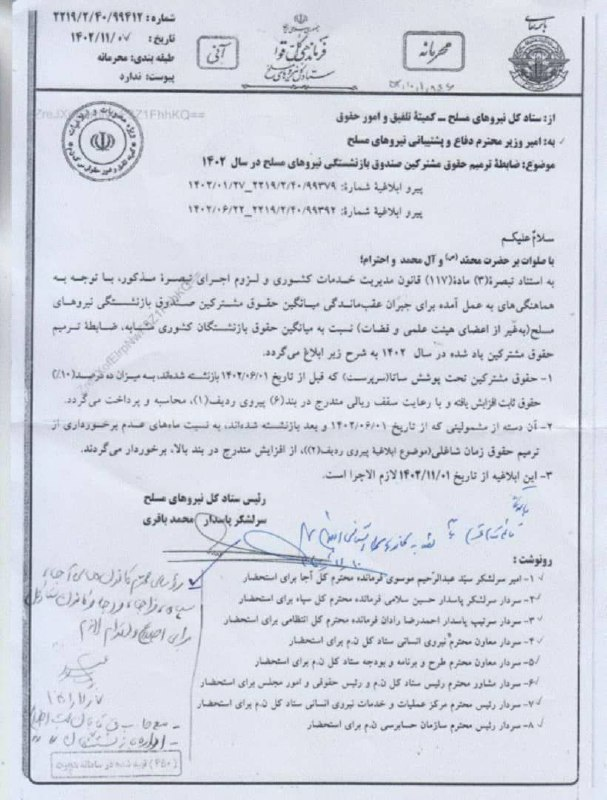 باسمه تعالی
شماره: ۲۲۱۹/۲/۴۰/۹۹۴۱۲
تاریخ: ۱۴۰۲/۱۱/۰۷
طبقه بندی: محرمانه
پیوست: ندارد
آنی
فرماندهی کل قوا
ستاد کل نیروهای مسلح
محرمانه
از: ستاد کل نیروهای مسلح – کمیتهٔ تلفیق و امور حقوق
به: امیر وزیر محترم دفاع و پشتیبانی نیروهای مسلح
موضوع: ضابطهٔ ترمیم حقوق مشترکین صندوق بازنشستگی نیروهای مسلح در سال ۱۴۰۲
پیرو ابلاغیهٔ شمارهٔ: ۲۲۱۹/۲/۴۰/۹۹۳۷۹_۱۴۰۲/۰۱/۲۷
پیرو ابلاغیهٔ شمارهٔ: ۲۲۱۹/۲/۴۰/۹۹۳۹۲_۱۴۰۲/۰۶/۲۲
سلامٌ علیکم
با صلوات بر حضرت محمّد (ص) و آل محمد و احترام؛
به استناد تبصرهٔ (۳) مادهٔ (۱۱۷) قانون مدیریت خدمات کشوری و لزوم اجرای تبصرهٔ مذکور، با توجه به
هماهنگی‌های به عمل آمده برای جبران عقب‌ماندگی میانگین حقوق مشترکین صندوق بازنشستگی نیروهای
مسلح (به‌غیر از اعضای هیئت علمی و قضات) نسبت به میانگین حقوق بازنشستگان کشوری مشابه، ضابطهٔ ترمیم
حقوق مشترکین یاد شده در سال ۱۴۰۲ به شرح زیر ابلاغ می‌گردد.
۱- حقوق مشترکین تحت پوشش ساتا(سرپرست) که قبل از تاریخ ۱۴۰۲/۰۶/۰۱ بازنشسته شده‌اند، به میزان ده درصد(۱۰٪)
حقوق ثابت افزایش یافته و با رعایت سقف ریالی مندرج در بند(۶) پیروی ردیف(۱)، محاسبه و پرداخت می‌گردد.
۲- آن دسته از مشمولینی که از تاریخ ۱۴۰۲/۰۶/۰۱ و بعد بازنشسته شده‌اند، به نسبت ماه‌های عدم برخورداری از
ترمیم حقوق زمان شاغلی(موضوع ابلاغیهٔ پیروی ردیف(۲))، از افزایش مندرج در بند بالا، برخوردار می‌گردند.
۳- این ابلاغیه از تاریخ ۱۴۰۲/۱۱/۰۱ لازم الاجرا است.
رئیس ستاد کل نیروهای مسلح
سرلشکر پاسدار محمد باقری
رونوشت:
۱- امیر سرلشکر سیّد عبدالرّحیم موسوی فرمانده محترم کل آجا برای استحضار
۲- سردار سرلشکر پاسدار حسین سلامی فرمانده محترم کل سپاه برای استحضار
۳- سردار سرتیپ پاسدار احمدرضا رادان فرمانده محترم کل انتظامی برای استحضار
۴- سردار معاون محترم نیروی انسانی ستاد کل ن.م برای استحضار
۵- سردار معاون محترم طرح و برنامه و بودجه ستاد کل ن.م برای استحضار
۶- سردار مشاور محترم رئیس ستاد کل ن.م و رئیس حقوقی و امور مجلس برای استحضار
۷- سردار رئیس محترم مرکز عملیات و خدمات نیروی انسانی ستاد کل ن.م برای استحضار
۸- سردار رئیس محترم سازمان حسابرسی ن.م برای استحضار